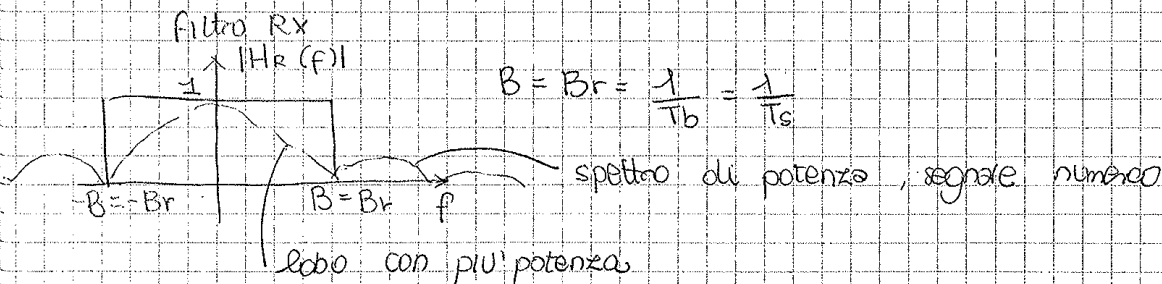 Filtro Rx
|HR(f)|
1
B = Br = 1/Tb = 1/Ts
spettro di potenza, segnale numerico
-B=-Br
B=Br
f
lobo con piu' potenza